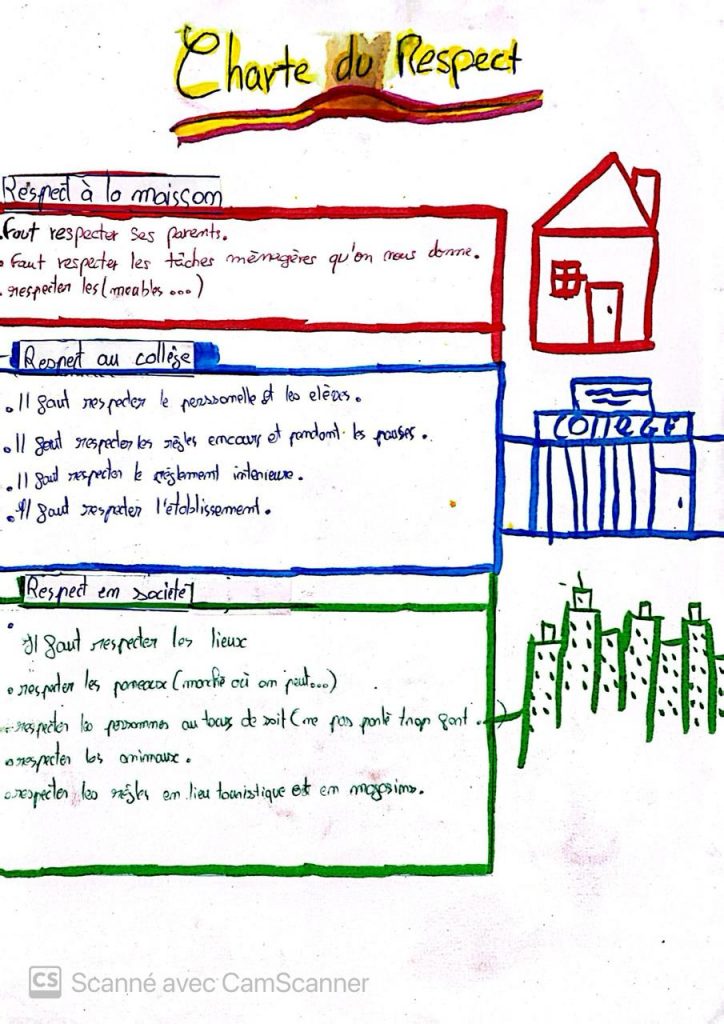 Charte du Respect
Respect à la maison
.Faut respecter ses parents.
. Faut respecter les tâches ménagères qu'on nous donne.
. respecter les (meubles...)
Respect au collège
. Il faut respecter le personnelle et les elèves.
. Il faut respecter les règles encours et pendant les pauses.
. Il faut respecter le règlement interieure.
. Il faut respecter l'établissement.
COLLEGE
Respect en societé
. Il faut respecter les lieux
. respecter les paneaux (marche où on peut...)
. respecter les personnes autours de soit (ne pas parlé trop fort.)
. respecter les animaux.
. respecter les règles en lieu touristique est en magasins.
CS Scanné avec CamScanner